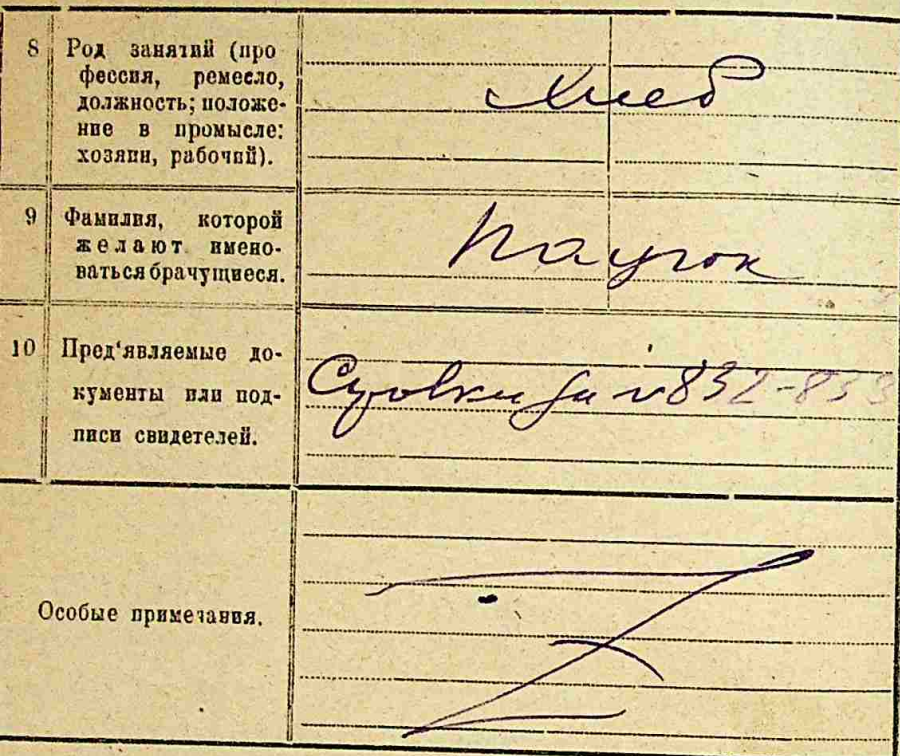 8 Род занятий (про
фессия, ремесло,
должность; положе-
ние в промысле:
хозяин, рабочий).
Хлеб
9 Фамилия, которой
желают имено-
ваться брачущиеся.
Паучок
10 Пред‘являемые до-
кументы или под-
писи свидетелей.
за № 832-833
Особые примечания.